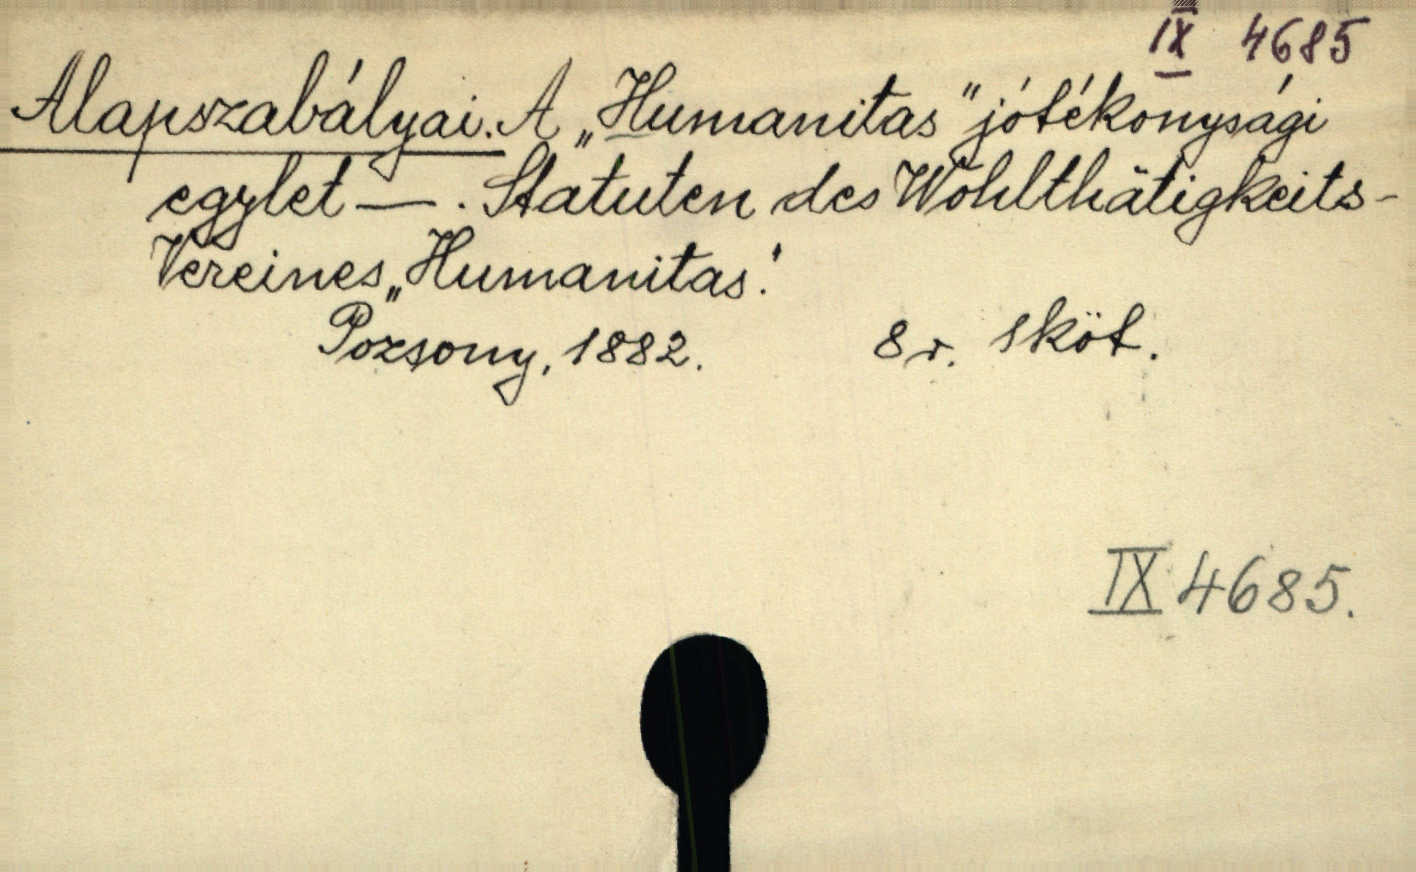 IX 4685
Alapszabályai. A „Humanitas" jótékonysági
egylet —. Statuten des Wohlthätigkeits-
Vereines „Humanitas".
Pozsony, 1882. 8 r. 1 köt.
IX 4685.